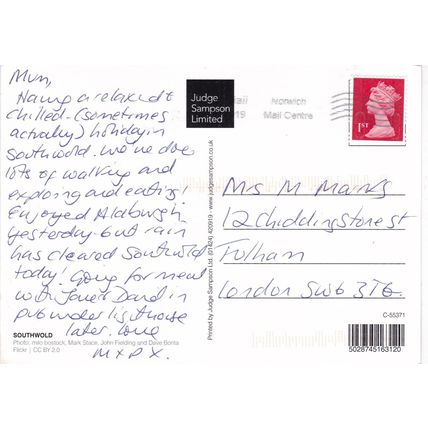 Mum,
Having a relaxed &
chilled - (sometimes
actually) holiday in
Southwold. We've done
lots of walking and
exploring and eating!
Enjoyed Aldburgh
yesterday but rain
has cleared Southwold
today! Going for meal
with Janet David in
pub under lighthouse
later. Love
M x P x.
SOUTHWOLD
Photo: milo bostock, Mark Stace, John Fielding and Dave Bonta
Flickr | CC BY 2.0
Judge
Sampson
Limited
Printed by Judge Sampson Ltd. (01424) 420919 - www.judgesampson.co.uk
Mail
19
Norwich
Mail Centre
1ST
Mrs M Marks
12 Chiddingstone st
Fulham
London SW6 3TG.
C-55371
5028745163120